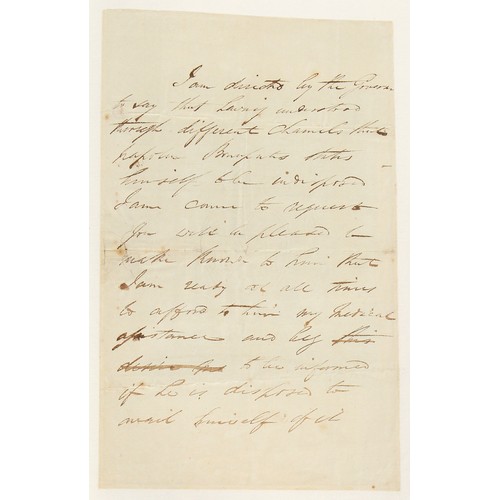 I am directed by the Governor
to say that having understood
through different channels that
Napoleon Bonaparte states
himself to be indisposed
I am come to request
you will be pleased to
make known to him that
I am ready at all times
to afford to him my medical
assistance and beg this
desire to be informed
if he is disposed to
avail himself of it